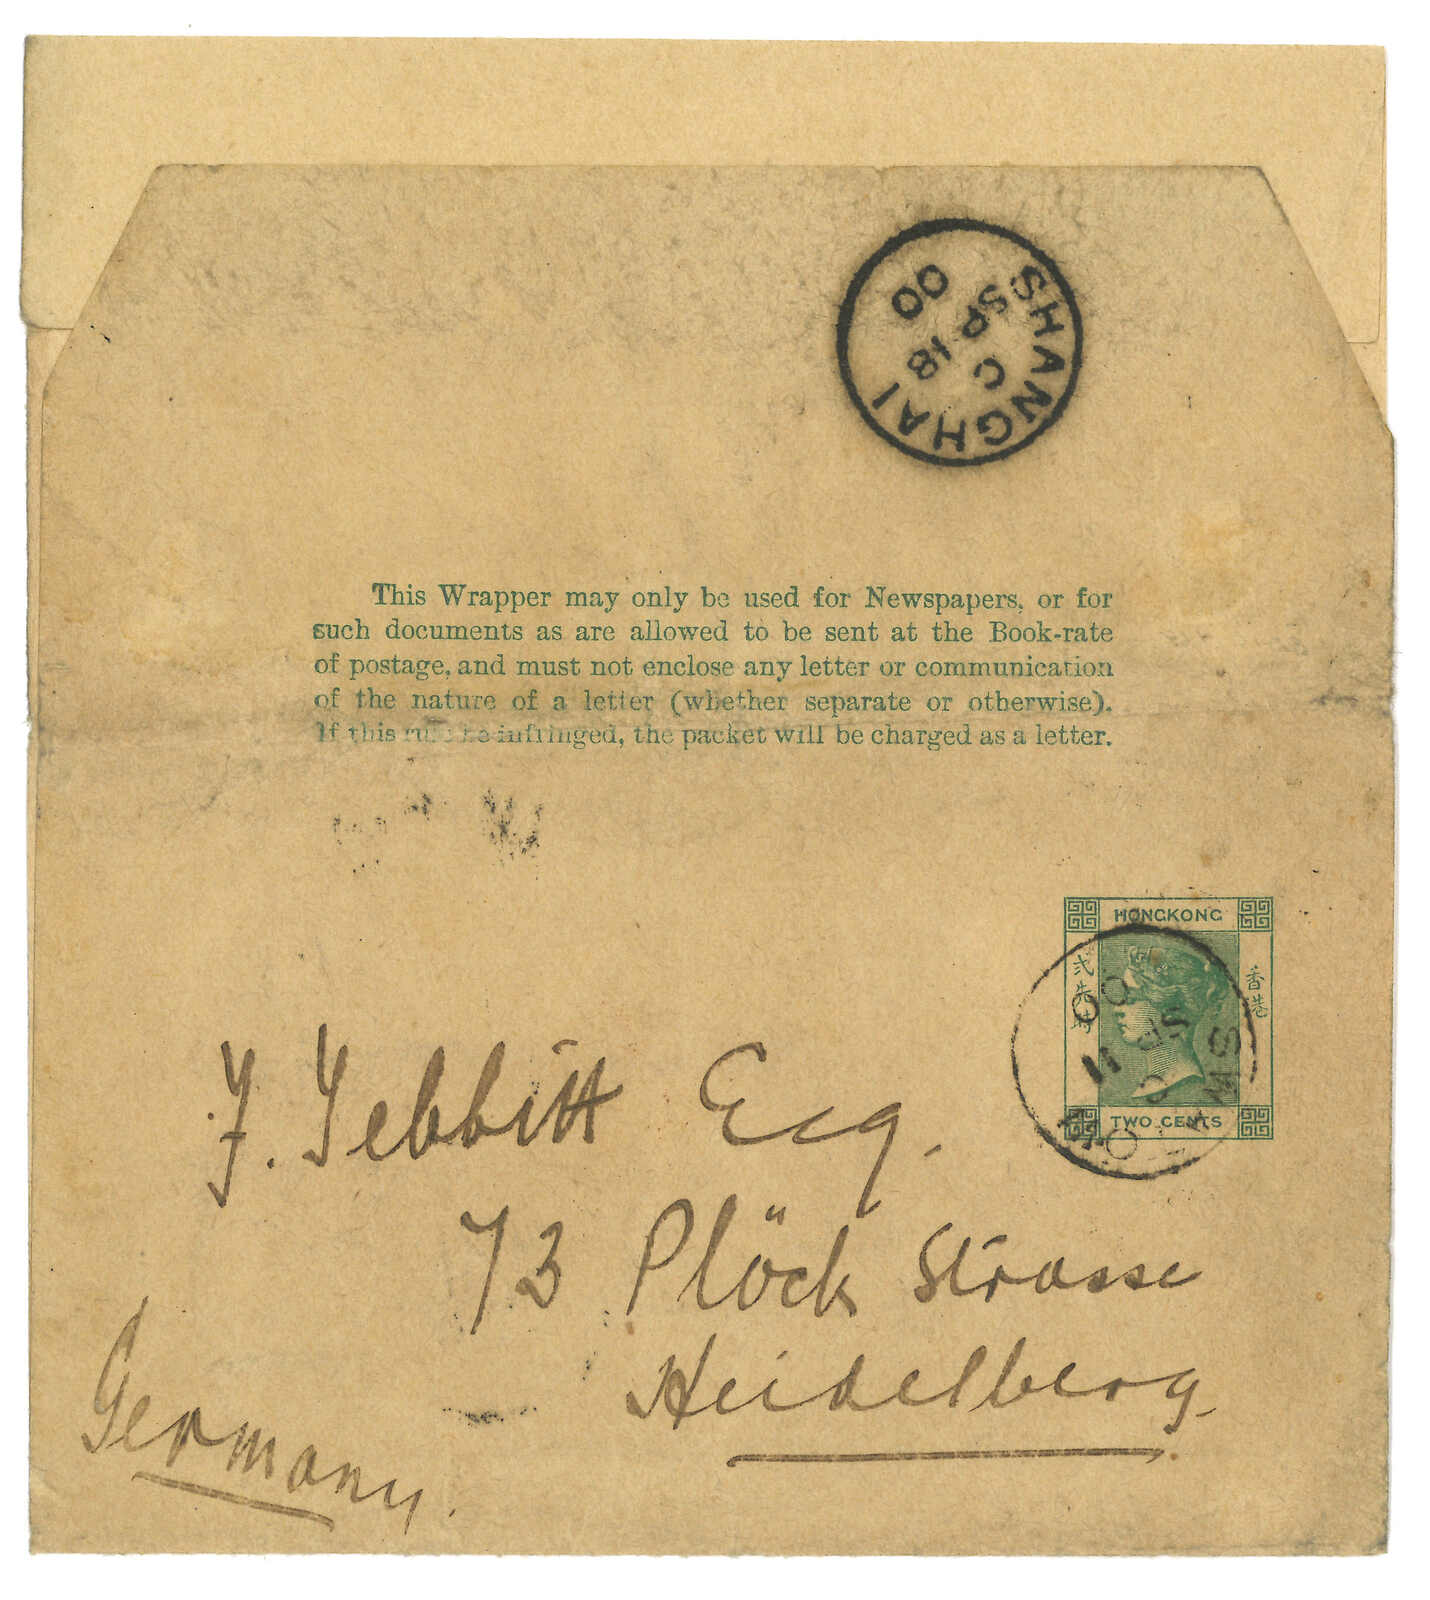 SHANGHAI
C
SP 18
00
This Wrapper may only be used for Newspapers, or for
such documents as are allowed to be sent at the Book-rate
of postage, and must not enclose any letter or communication
of the nature of a letter (whether separate or otherwise).
If this rule be infringed, the packet will be charged as a letter.
HONGKONG
香港
TWO CENTS
SWATOW
C
SP 11
00
F. Tebbitt Esq.
73 Plöck Strasse
Heidelberg.
Germany.